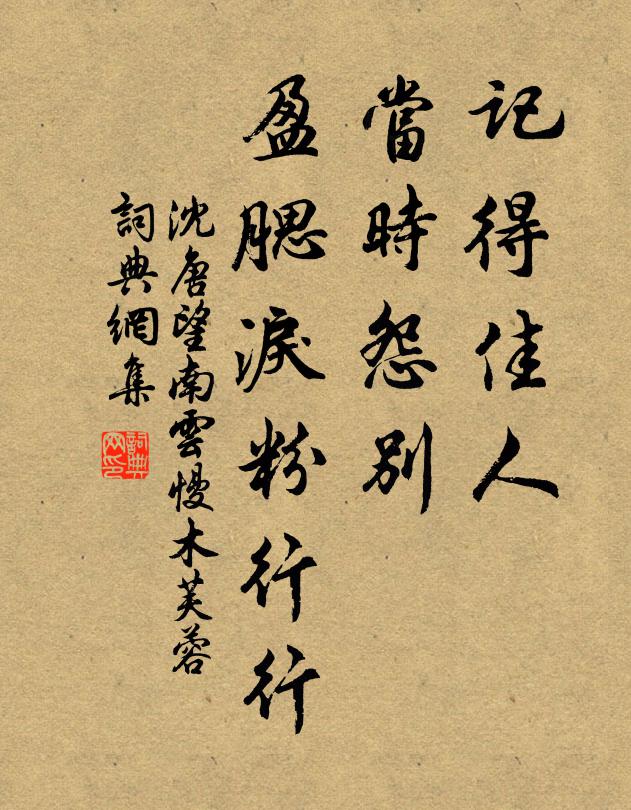 記得佳人
當時怨別
盈腮淚粉行行
沈唐望南雲慢木芙蓉
詞典網集
詞典
网印